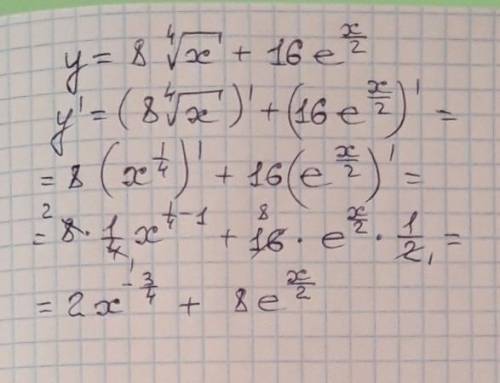 y = 8 ∜x + 16 e^{x/2}
y' = (8 ∜x)' + (16 e^{x/2})' =
= 8 (x^{1/4})' + 16 (e^{x/2})' =
= 8² · 1/4₁ x^{1/4 - 1} + 16⁸ · e^{x/2} · 1/2₁ =
= 2x^{-3/4} + 8e^{x/2}